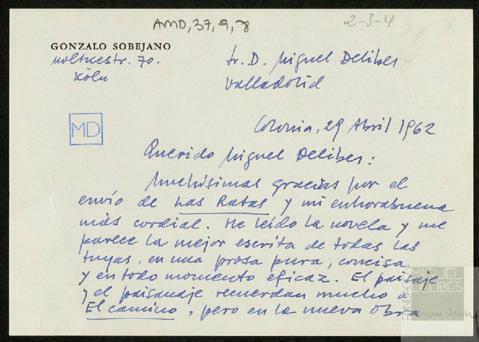 AMD, 37, 9, 8
2-3-4
GONZALO SOBEJANO
Moltkestr. 70.
Köln
Sr. D. Miguel Delibes
Valladolid
Colonia, 29 Abril 1962
MD
Querido Miguel Delibes:
Muchísimas gracias por el
envío de Las Ratas y mi enhorabuena
más cordial. He leído la novela y me
parece la mejor escrita de todas las
tuyas, en una prosa pura, concisa
y en todo momento eficaz. El paisaje
y el paisanaje recuerdan mucho a
El camino, pero en la nueva obra
FUNDACIÓN
MIGUEL
DELIBES